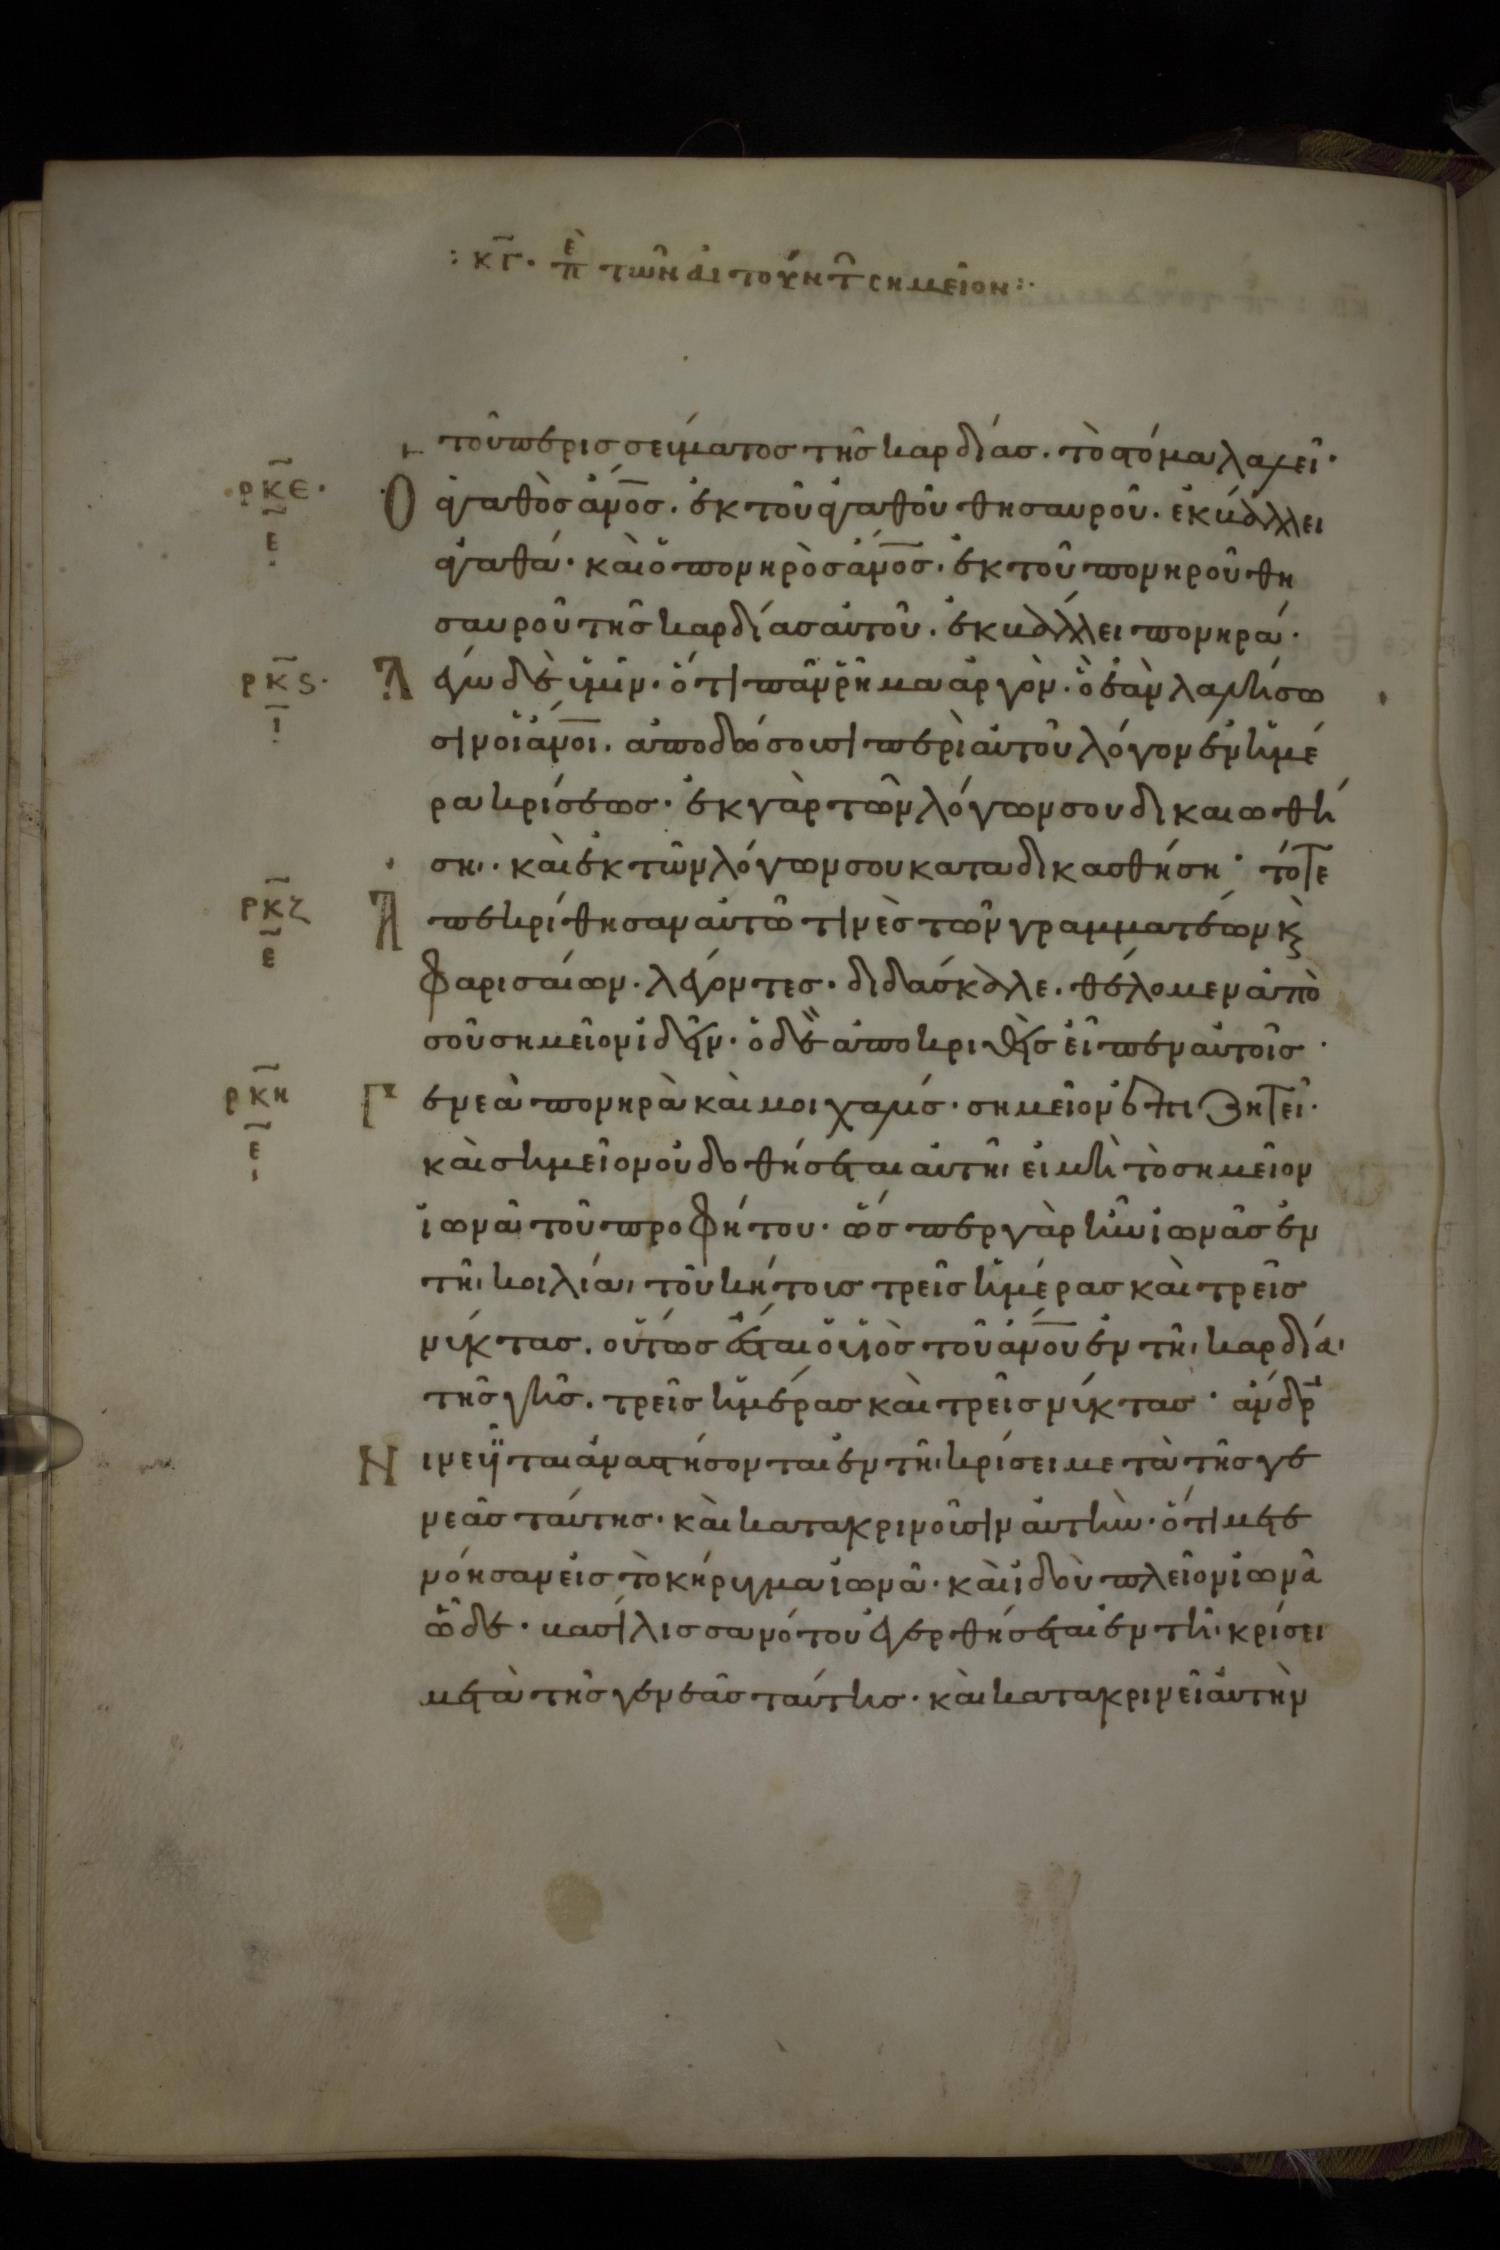 : κγ· πε τῶν αἰτούντ σημεῖον :·
τοῦ περισσεύματος τῆς καρδίας. τὸ στόμα λαλεῖ·
ρκε· Ὁ ἀγαθὸς ἄνος. ἐκ τοῦ ἀγαθοῦ θησαυροῦ. ἐκβάλλει
ε ἀγαθά· καὶ ὁ πονηρὸς ἄνος. ἐκ τοῦ πονηροῦ θη
σαυροῦ τῆς καρδίας αὐτοῦ. ἐκβάλλει πονηρά·
ρκς· Λ έγω δὲ ὑμῖν· ὅτι πᾶν ῥῆμα ἀργὸν· ὃ ἐὰν λαλήσω
ι σιν οἱ ἄνοι. ἀποδώσουσι περὶ αὐτοῦ λόγον ἐν ἡμέ
ρα κρίσεως· ἐκ γὰρ τῶν λόγων σου δικαιωθή
ση· καὶ ἐκ τῶν λόγων σου καταδικασθήση· τότε
ρκζ Α πεκρίθησαν αὐτῶ τινὲς τῶν γραμματέων κ
ε φαρισαίων. λέγοντες· διδάσκαλε. θέλομεν ἀπὸ
σοῦ σημεῖον ἰδεῖν· ὁ δὲ ἀποκριθεὶς εἶπεν αὐτοῖς·
ρκη Γ ενεὰ πονηρὰ καὶ μοιχαλίς· σημεῖον ἐπιζητεῖ·
ε καὶ σημεῖον οὐ δοθήσεται αὐτῆ εἰ μὴ τὸ σημεῖον
ἰωνᾶ τοῦ προφήτου· ὥσπερ γὰρ ἦν ἰωνᾶς ἐν
τῆ κοιλία τοῦ κήτους τρεῖς ἡμέρας καὶ τρεῖς
νύκτας. οὕτως ἔσται ὁ υἱὸς τοῦ ἀνου ἐν τῆ καρδία
τῆς γῆς. τρεῖς ἡμέρας καὶ τρεῖς νύκτας· ἄνδρ
Ν ινευῖται ἀναστήσονται ἐν τῆ κρίσει μετὰ τῆς γε
νεᾶς ταύτης· καὶ κατακρινοῦσιν αὐτὴν· ὅτι μετε
νόησαν εἰς τὸ κήρυγμα ἰωνᾶ· καὶ ἰδοὺ πλεῖον ἰωνᾶ
ὧδε· βασίλισσα νότου ἐγερθήσεται ἐν τῆ κρίσει
μετὰ τῆς γενεᾶς ταύτης· καὶ κατακρινεῖ αὐτὴν